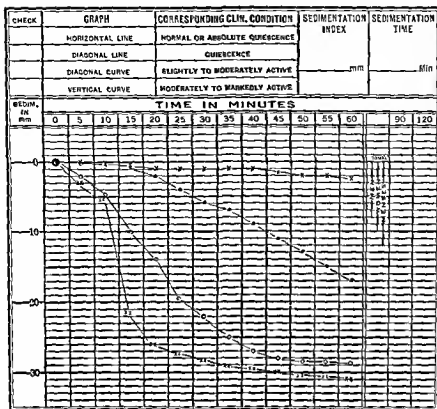 CHECK GRAPH CORRESPONDING CLIN. CONDITION SEDIMENTATION INDEX SEDIMENTATION TIME
HORIZONTAL LINE NORMAL OR ABSOLUTE QUIESCENCE
DIAGONAL LINE QUIESCENCE
DIAGONAL CURVE SLIGHTLY TO MODERATELY ACTIVE mm Min
VERTICAL CURVE MODERATELY TO MARKEDLY ACTIVE
SEDIM. IN mm TIME IN MINUTES
0 5 10 15 20 25 30 35 40 45 50 55 60 90 120
0
10
20
30